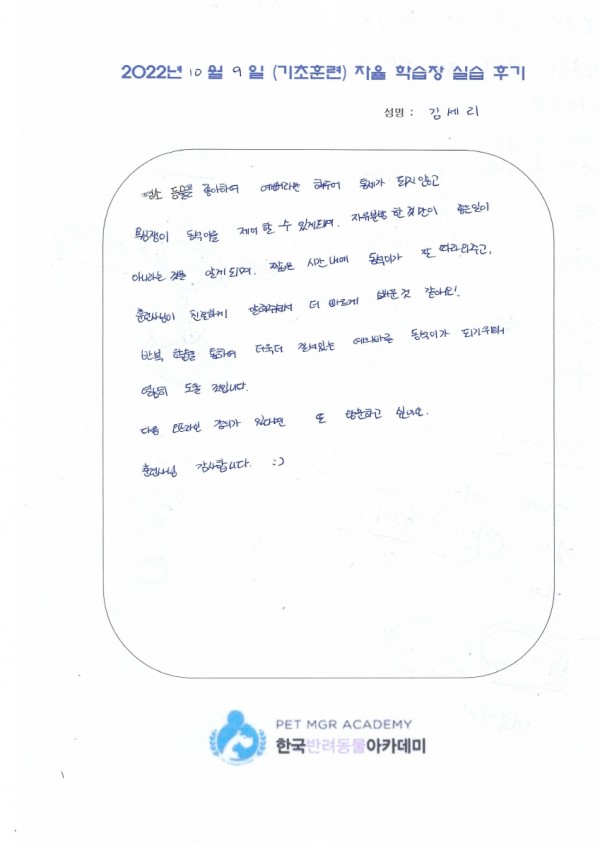 2022년 10월 9일 (기초훈련) 자율 학습장 실습 후기
성명 : 김세리
평소 동물을 좋아하여 예뻐라만 해주어 통제가 되지않고
동석이를 제어 할 수 있게되며, 자유분방 한 것 만이 좋은일이
아니라는 것을 알게 되며, 짧은 시간 내에 동석이가 잘 따라와주고,
훈련사님이 친절하게 알려주셔서 더 빠르게 배운 것 같아요!
반복 학습을 통하여 더욱더 질서있는 예의바른 동석이가 되기위해
열심히 도울 것입니다.
다음 오프라인 강의가 있다면 또 방문하고 싶네요.
훈련사님 감사합니다. :)
PET MGR ACADEMY
한국반려동물아카데미